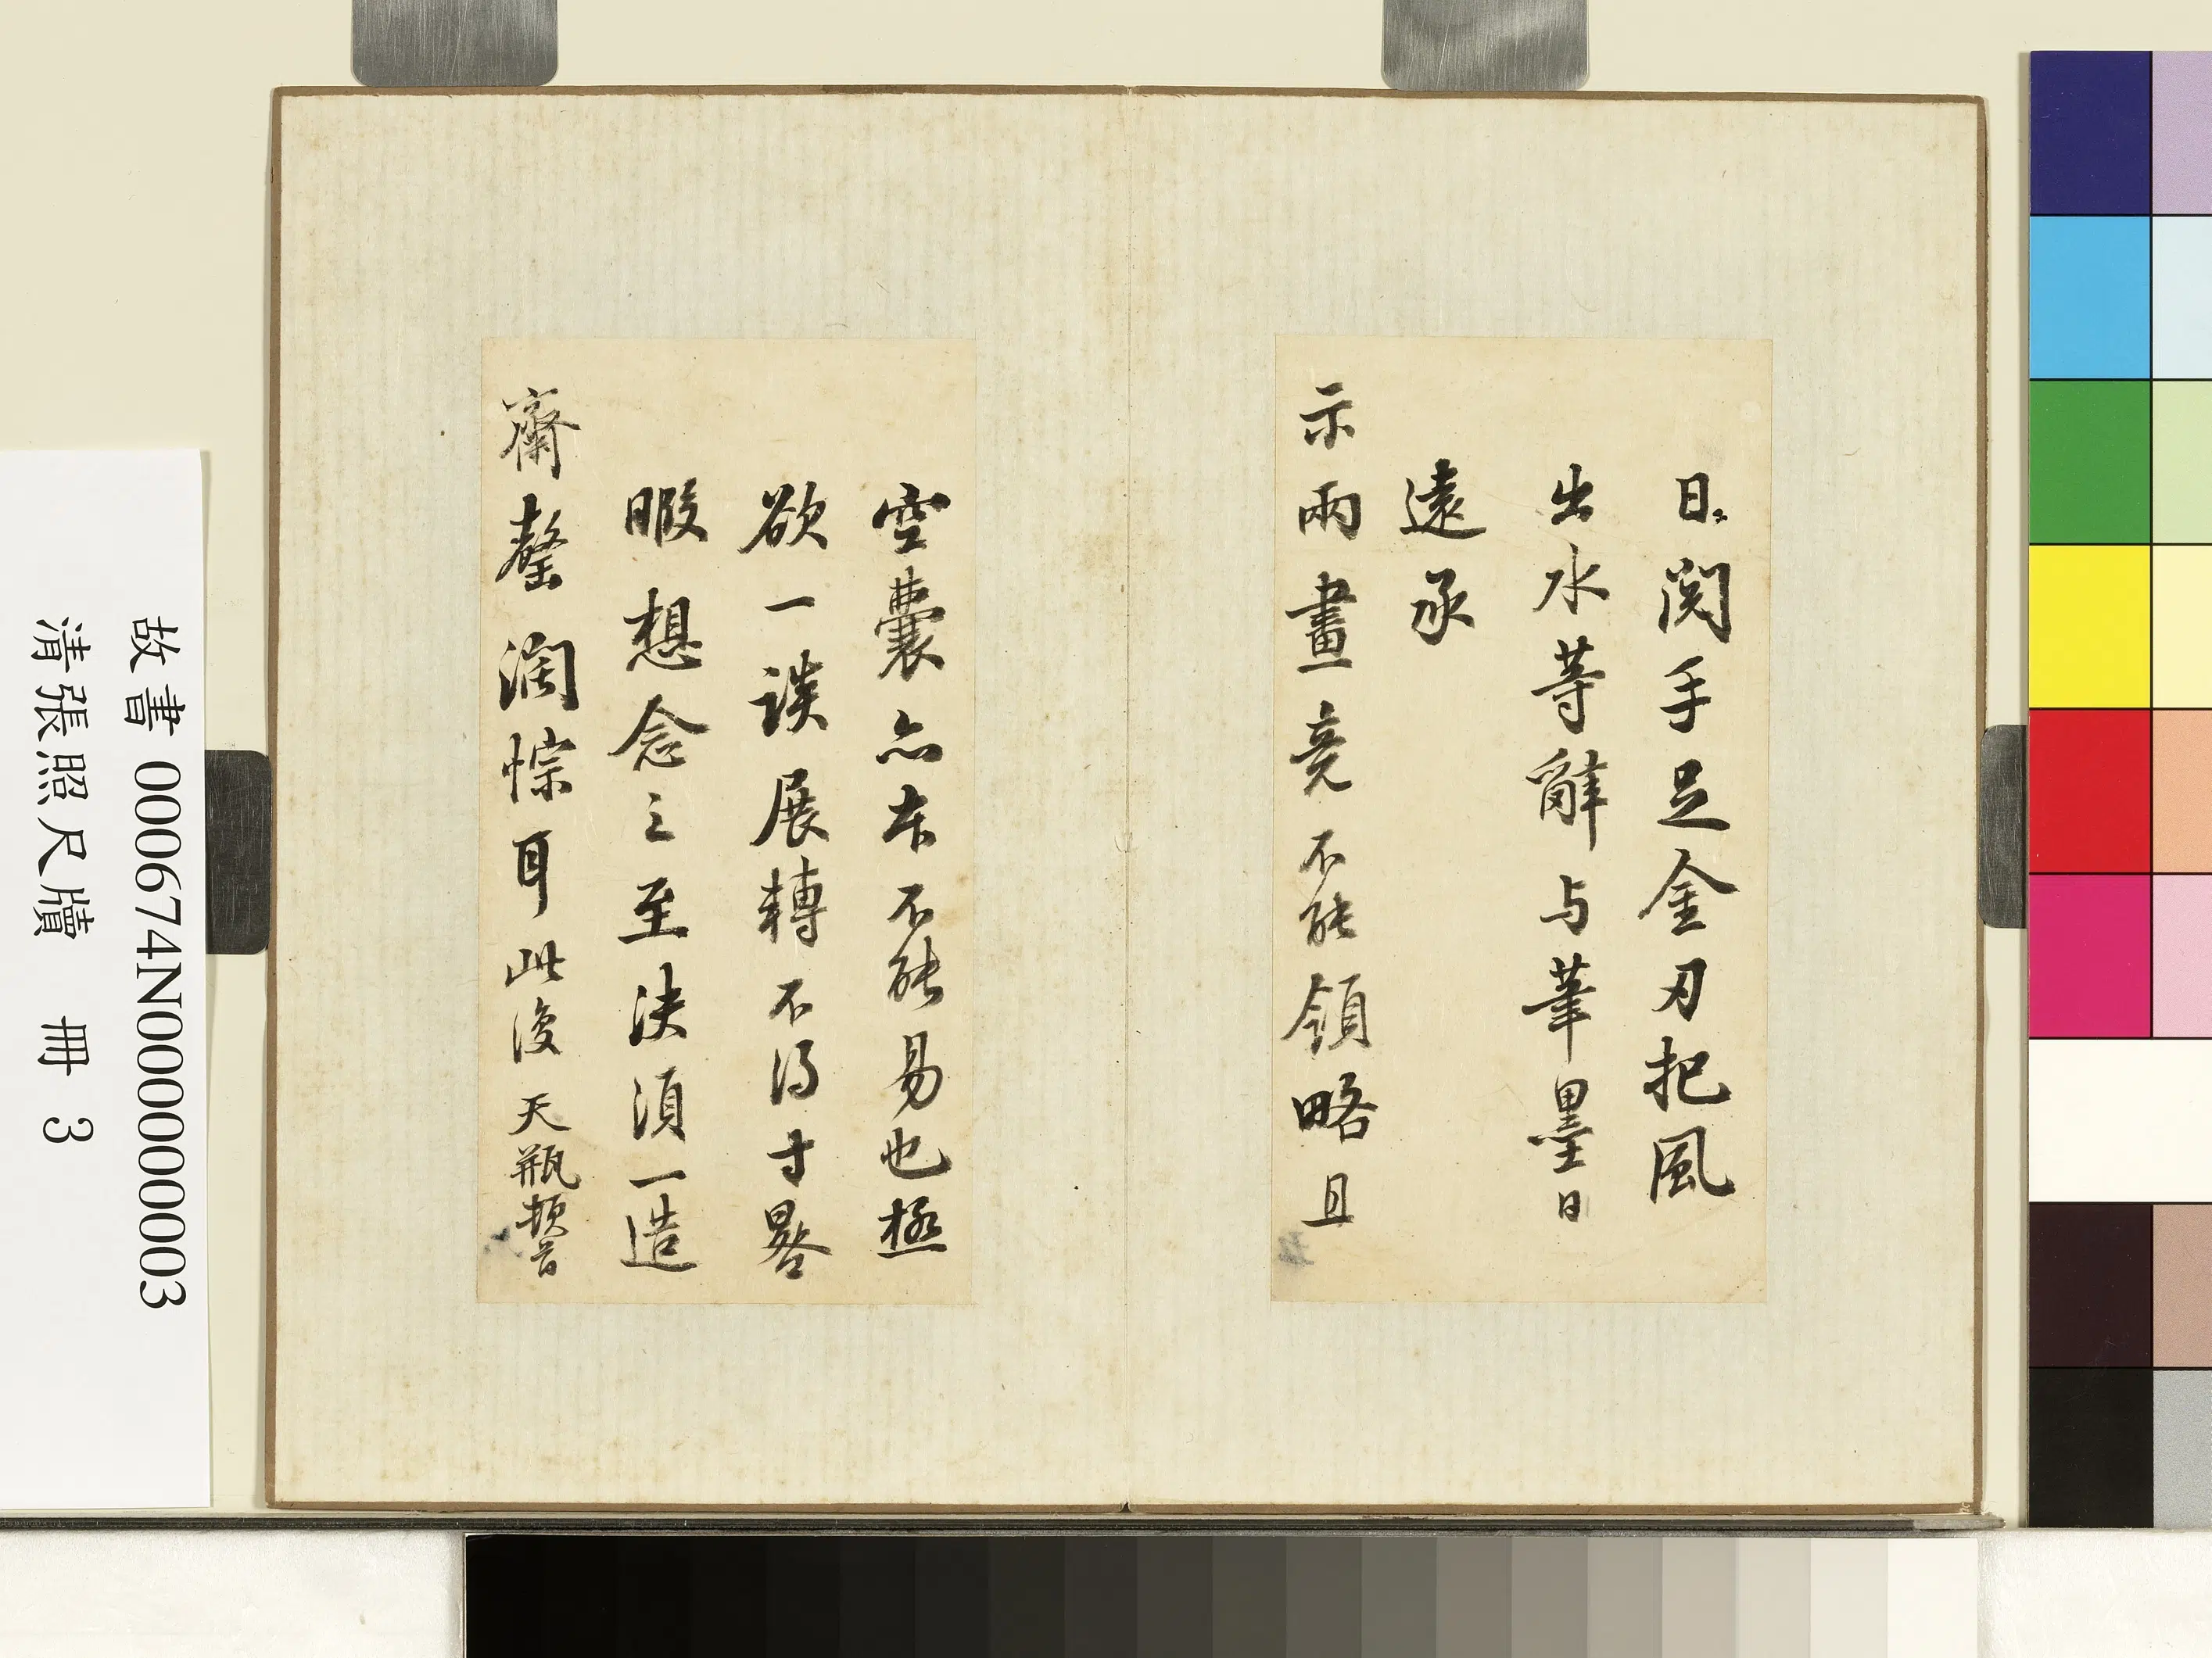 日〻閱手足金刃把風
出水等辭与筆墨日
遠承
示兩畫竟不能領略且
空囊亦本不能易也極
欲一談展轉不得寸晷
暇想念之至決須一造
齋罄潤悰耳此後天瓶頓首
故書000674N000000003
清張照尺牘 冊 3